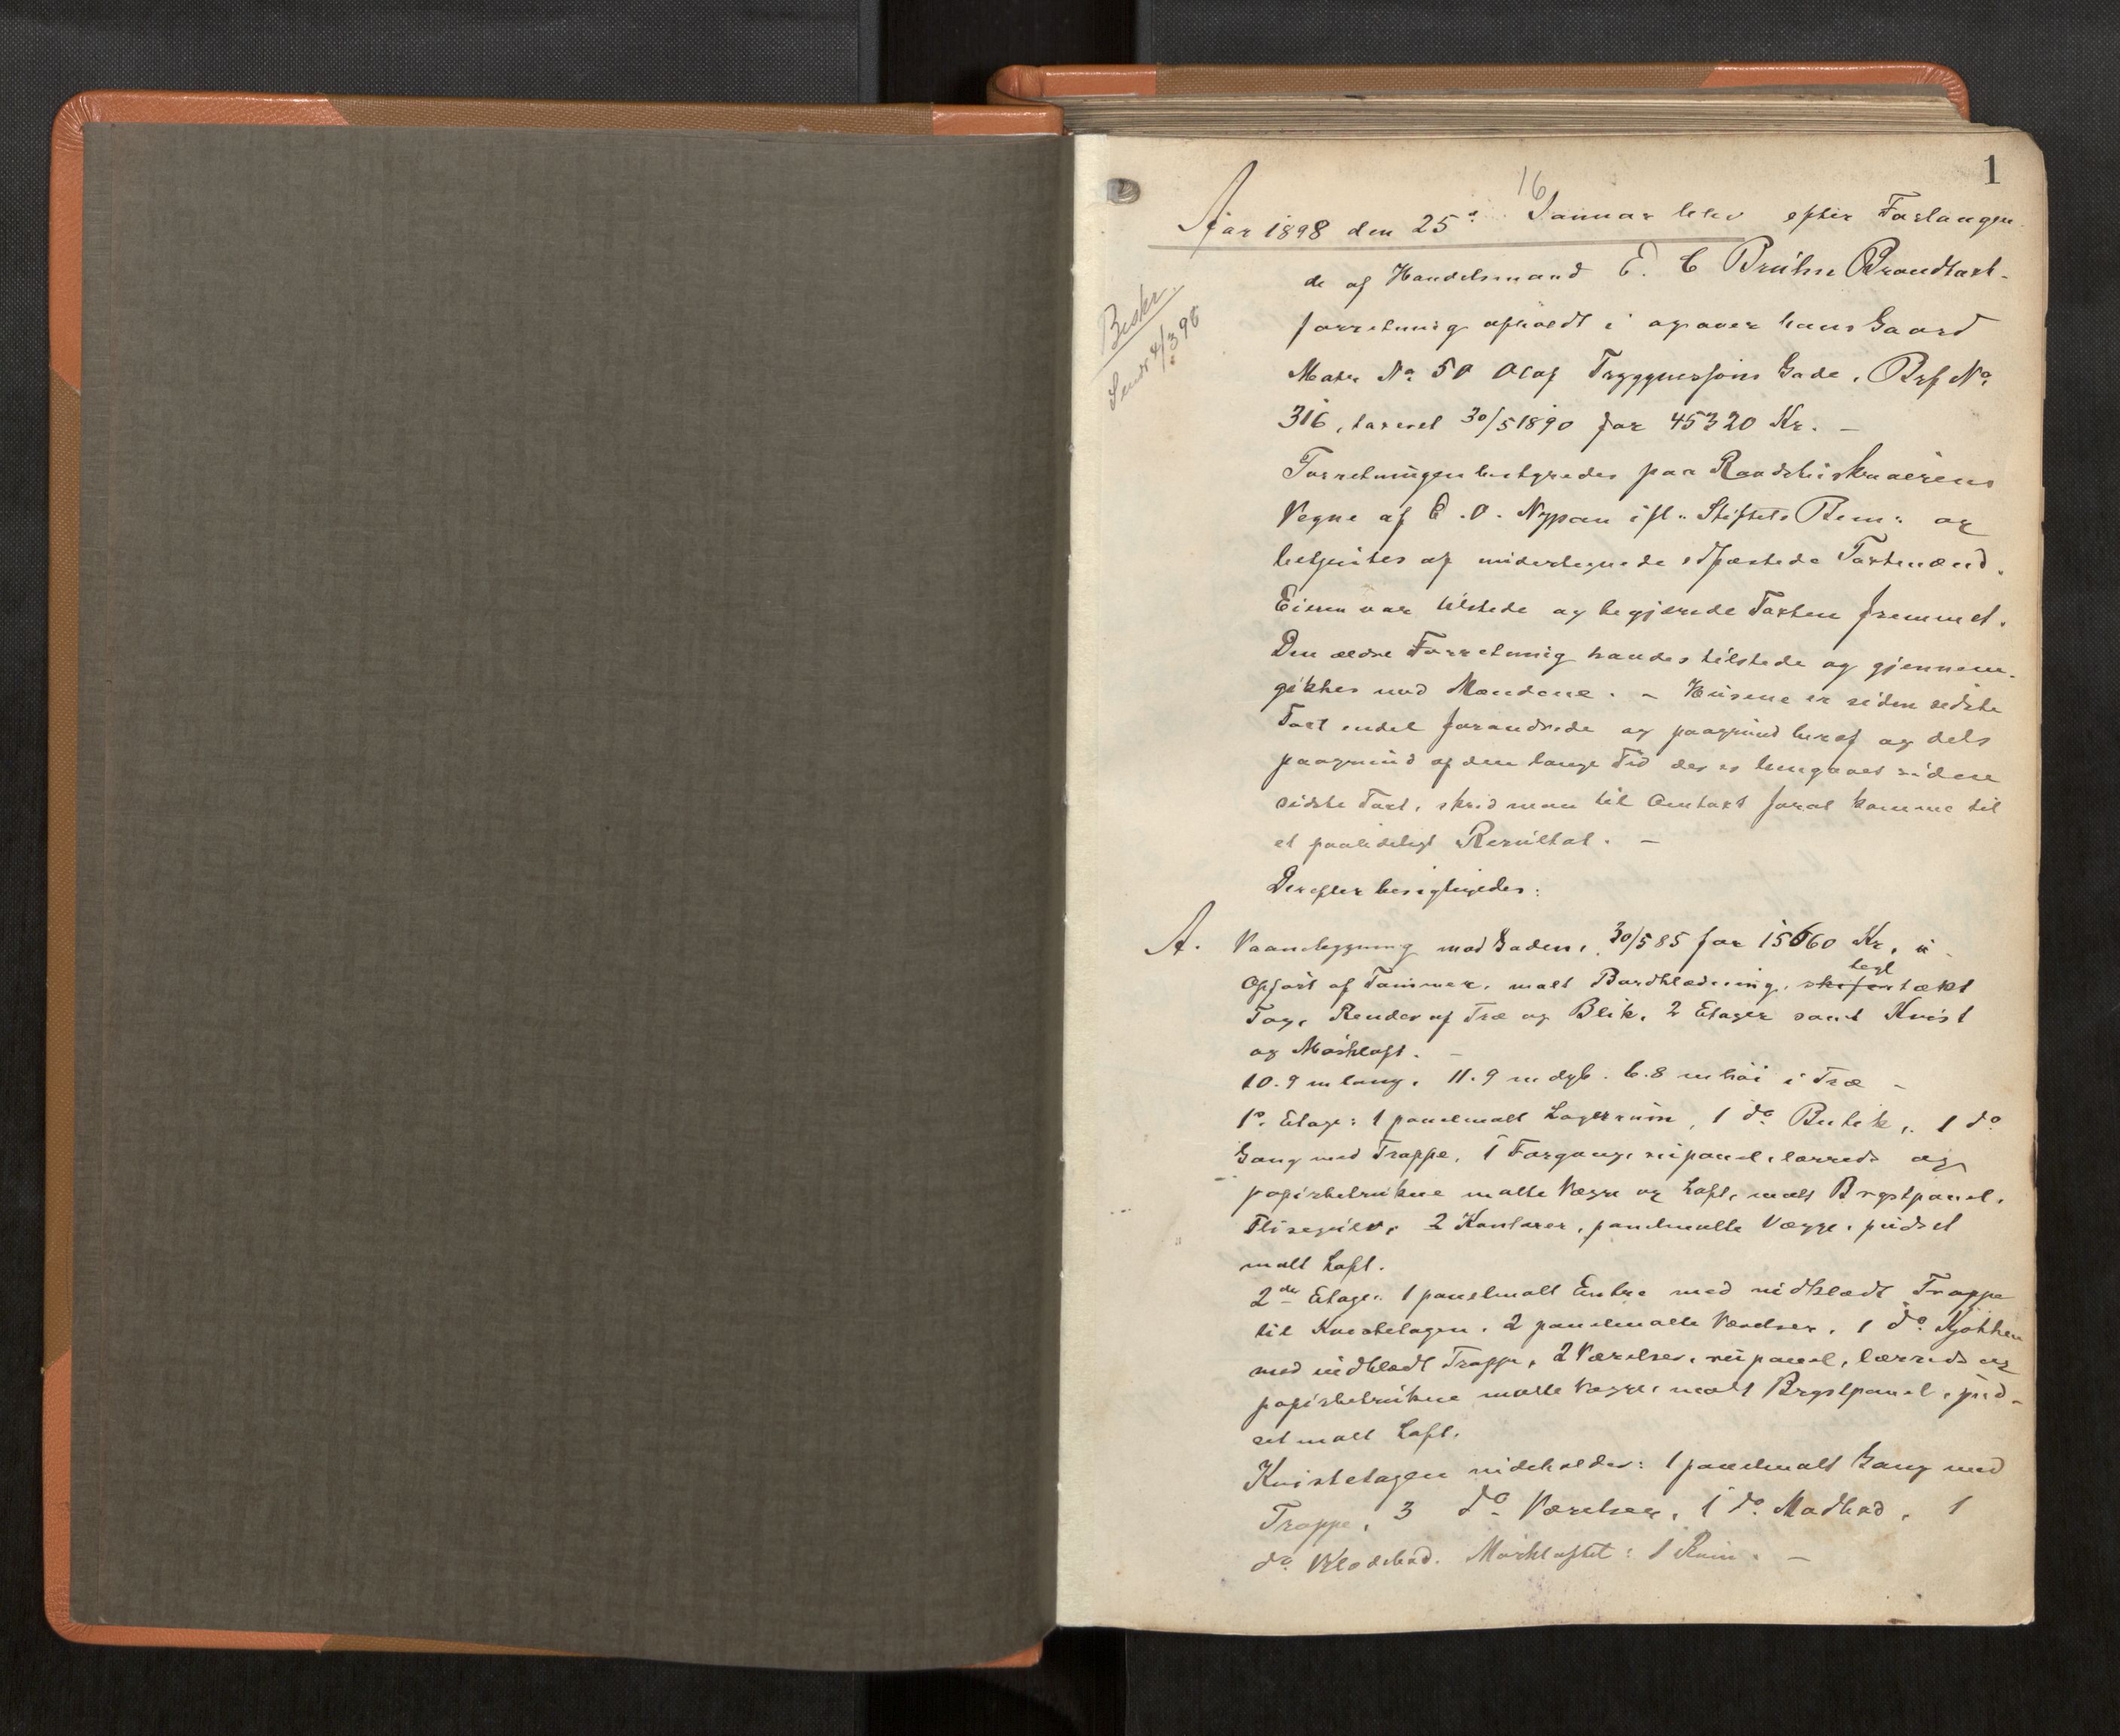 1
16
Aar 1898 den 25de Januar blev efter Forlangen
de af Handelsmand E. C Bruhn Brandtaxt-
forretning afholdt i og over hans Gaard
Matr. No 50 Olaf Tryggvessøns Gade, Brf No
316, taxeret 30/5 1890 for 45320 Kr. —
Forretningen bestyredes paa Raadstueskriverens
Vegne af E. O. Nypan ifl. Stiftets Bem: og
betjentes af undertegnede edfæstede Taxtmænd.
Eieren var tilstede og begjærede Taxten fremmet.
Den ældre Forretning havdes tilstede og gjennem-
gikkes med Mændene. - Husene er siden sidste
Taxt endel forandrede og paagrund heraf og dels
paagrund af den lange Tid der er hengaaet siden
sidste Taxt, skred man til Omtaxt forat komme til
et paalideligt Resultat. —
Derefter besigtigedes:
Beskr.
Sendt 4/3 98
A. Vaanebygning mod Gaden, 30/5 85 for 15660 Kr,
Opført af Tømmer, malt Bordklædning, skifer tegl tækt
Tag, Render af Træ og Blik, 2 Etager samt Kvist
og Mørkloft. —
10.9 m lang, 11.9 m dyb. 6.8 m høi i Træ -
1ste Etage: 1 panelmalt Lagerrum, 1 do Butik, 1 do
Gang med Trappe, 1 Forgang, rupanel, lærreds og
papirbetrukne malte Vægge og Loft, malt Brystpanel,
Flisegulv, 2 Kontorer, panelmalte Vægge, pudset
malt Loft.
2den Etage: 1 panelmalt Entre med indklædt Trappe
til Kvistetagen, 2 panelmalte Værelser, 1 do Kjøkken
med indklædt Trappe, 2 Værelser, rupanel, lærreds og
papirbetrukne malte Vægge, malt Brystpanel, pud-
set malt Loft.
Kvistetagen indeholder: 1 panelmalt Gang med
Trappe, 3 do Værelser, 1 do Madbod, 1
do Klædebod. Mørkloftet: 1 Rum. —